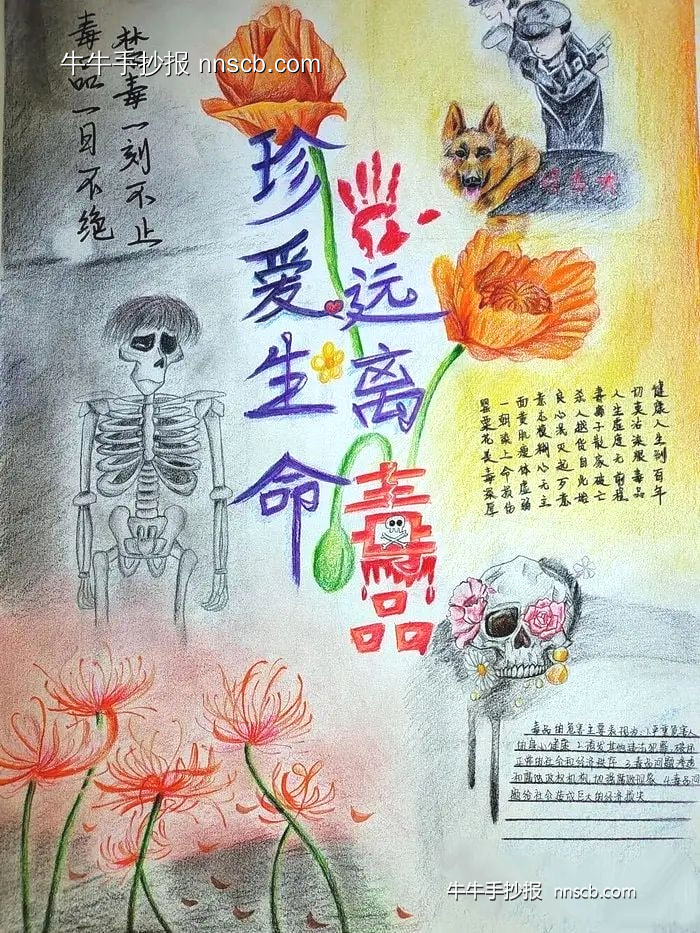 牛牛手抄报 nnscb.com
毒品一日不绝
禁毒一刻不止
珍爱生命
远离毒品
罂粟花美毒深厚
一朝染上命
面黄肌瘦体虚弱
意志模糊心无主
良心泯灭起歹意
杀人越货自
妻离子散家破亡
人生虚度无前程
切莫沾染服毒品
健康人生到百年
毒品的危害主要表现为:1.严重危害人
的身心健康 2.诱发其他违法犯罪,破坏
正常的社会和经济秩序 3.毒品问题渗透
和腐蚀政权机构,加强腐败现象 4.毒品问
题给社会造成巨大的经济损失
牛牛手抄报 nnscb.com